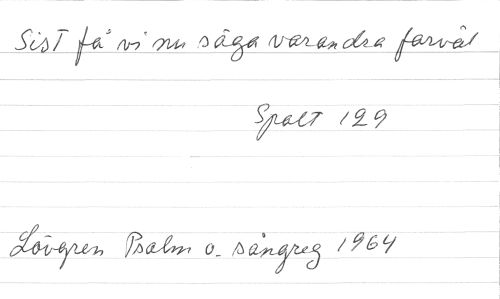 Sist få vi nu säga varandra farväl
Spalt 129
Lövgren Psalm o. sångreg 1964